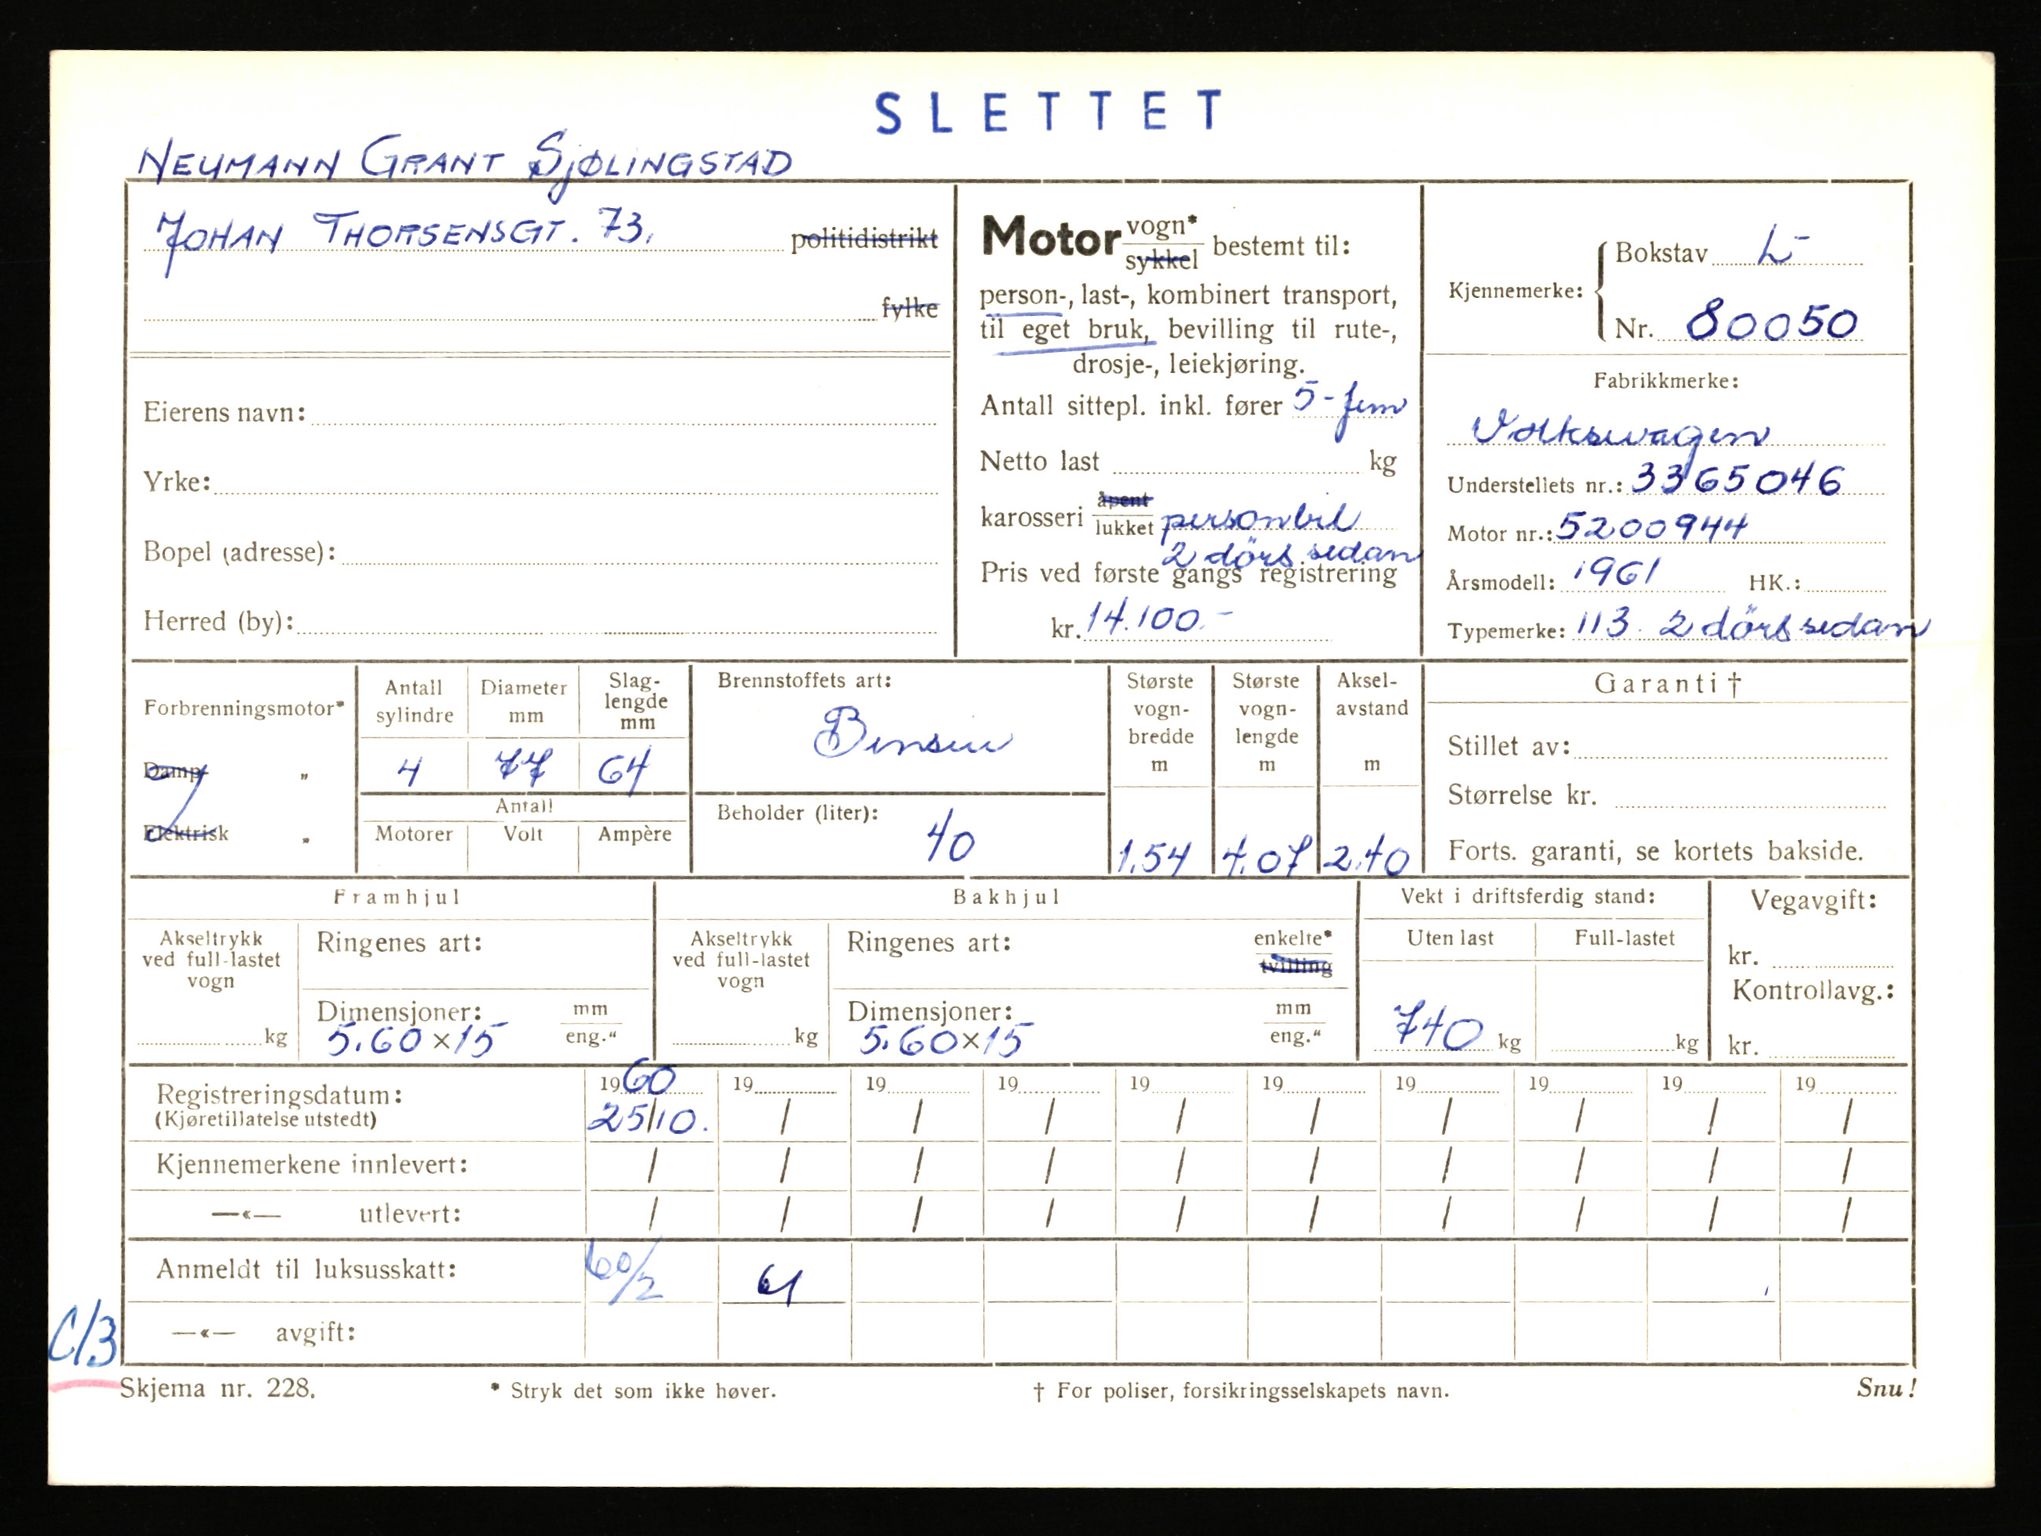 SLETTET
NEUMANN GRANT SJØLINGSTAD
JOHAN THORSENSGT. 73. politidistrikt
fylke
Eierens navn:
Yrke:
Bopel (adresse):
Herred (by):
Motor vogn* sykkel bestemt til:
person-, last-, kombinert transport,
til eget bruk, bevilling til rute-,
drosje-, leiekjøring.
Antall sittepl. inkl. fører 5-fem
Netto last kg
karosseri åpent lukket personbil
2 dörs sedan
Pris ved første gangs registrering
kr. 14.100.-
Kjennemerke: Bokstav L-
Nr. 80050
Fabrikkmerke:
Volkswagen
Understellets nr.: 3365046
Motor nr.: 5200944
Årsmodell: 1961 HK.:
Typemerke: 113 2 dörs sedan
Forbrenningsmotor*
Damp „
Elektrisk „
Antall sylindre
Diameter mm
Slag-lengde mm
4 77 64
Antall
Motorer Volt Ampère
Brennstoffets art:
Bensin
Beholder (liter):
40
Største vogn-bredde m
1.54
Største vogn-lengde m
4.07
Aksel-avstand m
2.40
Garanti †
Stillet av:
Størrelse kr.
Forts. garanti, se kortets bakside.
Framhjul
Akseltrykk ved full-lastet vogn
kg
Ringenes art:
Dimensjoner: mm
5.60×15 eng."
Bakhjul
Akseltrykk ved full-lastet vogn
kg
Ringenes art: enkelte*
tvilling
Dimensjoner: mm
5.60×15 eng."
Vekt i driftsferdig stand:
Uten last Full-lastet
740 kg kg
Vegavgift:
kr.
Kontrollavg.:
kr.
Registreringsdatum: 1960 19 19 19 19 19 19 19 19 19
(Kjøretillatelse utstedt) 25/10. / / / / / / / / /
Kjennemerkene innlevert: / / / / / / / / / /
—«— utlevert: / / / / / / / / / /
Anmeldt til luksusskatt: 60/2 61
—«— avgift:
C/3
Skjema nr. 228. * Stryk det som ikke høver. † For poliser, forsikringsselskapets navn. Snu!